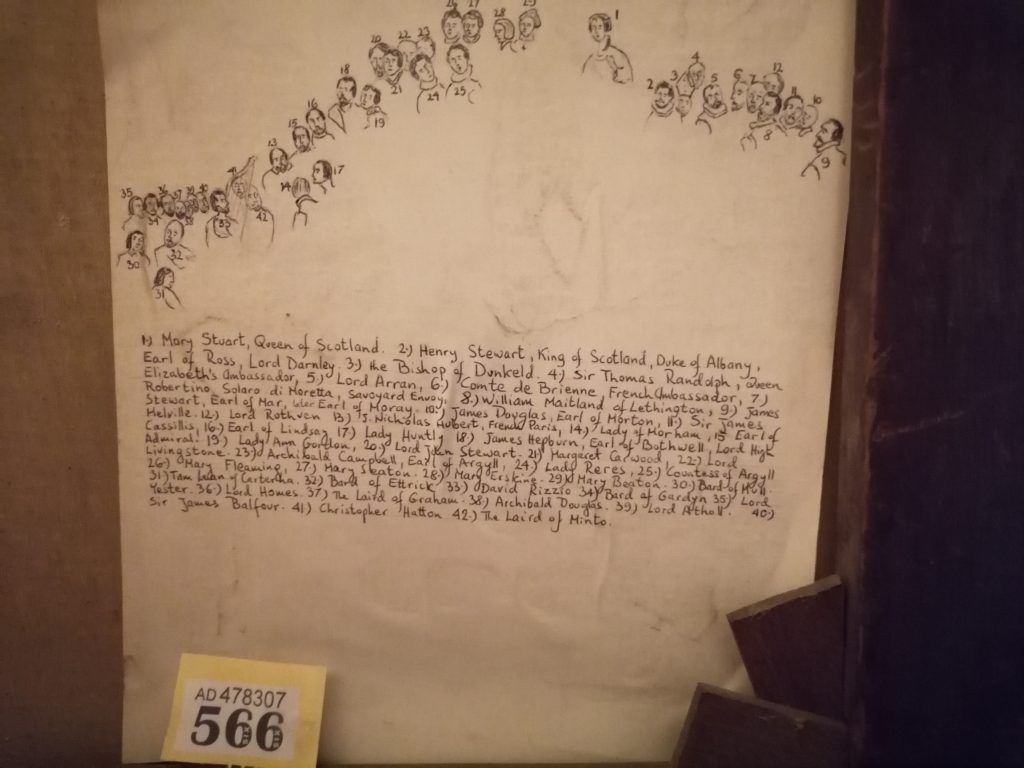 26 27 28 29 1
20 22 23
21 24 25
18 19
16 15 13 17 14
2 3 4 5 6 7 12 8 11 10 9
35 34 36 37 38 39 40 41 42 33
30 32
31
1.) Mary Stuart, Queen of Scotland. 2.) Henry Stewart, King of Scotland, Duke of Albany,
Earl of Ross, Lord Darnley. 3.) the Bishop of Dunkeld. 4.) Sir Thomas Randolph, Queen
Elizabeth's Ambassador, 5.) Lord Arran, 6.) Comte de Brienne, French Ambassador, 7.)
Robertino Solaro di Moretta, Savoyard Envoy. 8.) William Maitland of Lethington, 9.) James
Stewart, Earl of Mar, later Earl of Moray. 10.) James Douglas, Earl of Morton, 11.) Sir James
Melville. 12.) Lord Rothven 13.) J. Nicholas Hubert, French Paris, 14.) Lady of Morham, 15 Earl of
Cassillis, 16.) Earl of Lindsay 17) Lady Huntly 18) James Hepburn, Earl of Bothwell, Lord High
Admiral. 19.) Lady Ann Gordon, 20.) Lord John Stewart. 21) Margaret Carwood. 22.) Lord
Livingstone. 23.) Archibald Campbell, Earl of Argyll, 24) Lady Reres, 25.) Countess of Argyll
26.) Mary Fleaming, 27.) Mary Seaton. 28.) Mary Erskine. 29) Mary Beaton. 30.) Bard of Mull.
31) Tam of 32) Bard of Ettrick 33) David Rizzio 34) Bard of Gardyn 35) Lord
Yester. 36.) Lord Homes. 37) The Laird of Graham. 38) Archibald Douglas. 39) Lord Atholl. 40.)
Sir James Balfour. 41) Christopher Hatton 42.) The Laird of Minto.
AD 478307
566